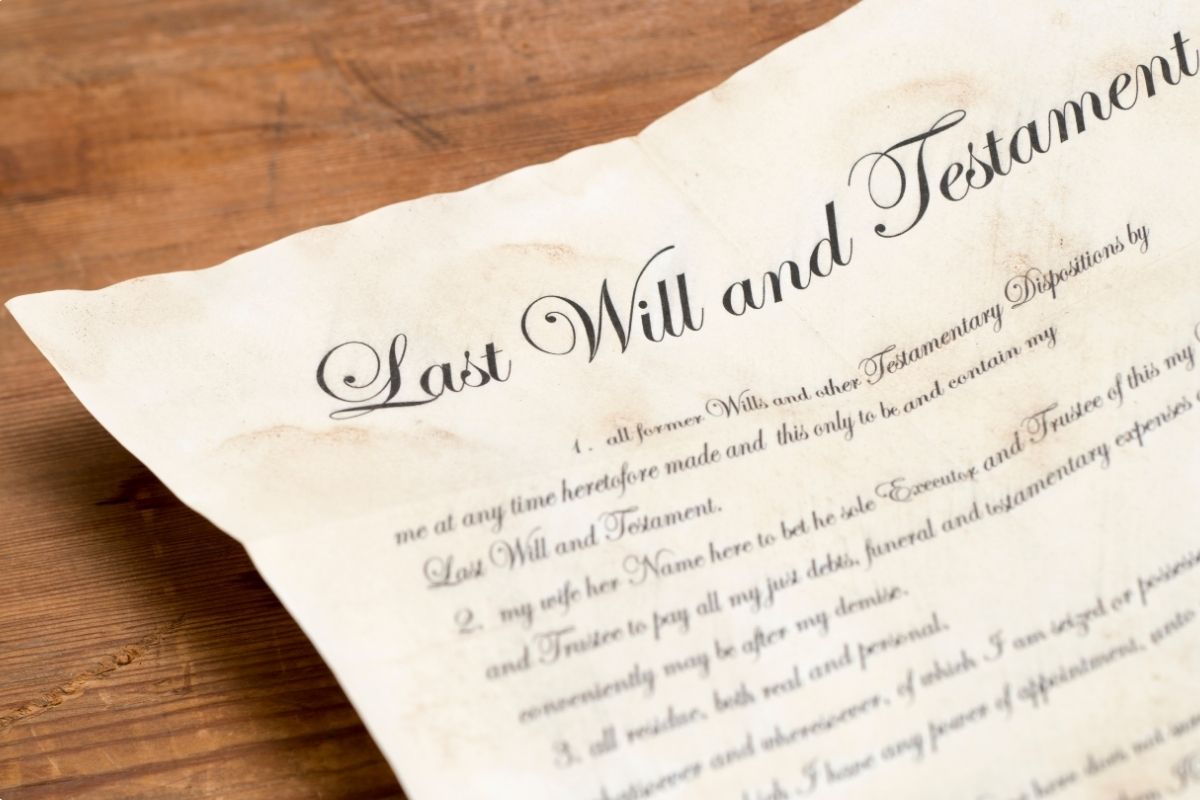 Last Will and Testament
1. all former Wills and other Testamentary Dispositions by
me at any time heretofore made and this only to be and contain my
Last Will and Testament.
2. my wife her Name here to bet he sole Executor and Trustee of this my
and Trustee to pay all my just debts, funeral and testamentary expenses
conveniently may be after my demise.
3. all residue, both real and personal,
and wheresoever, of which I am seized or
which I have any power of appointment, unto
here does not